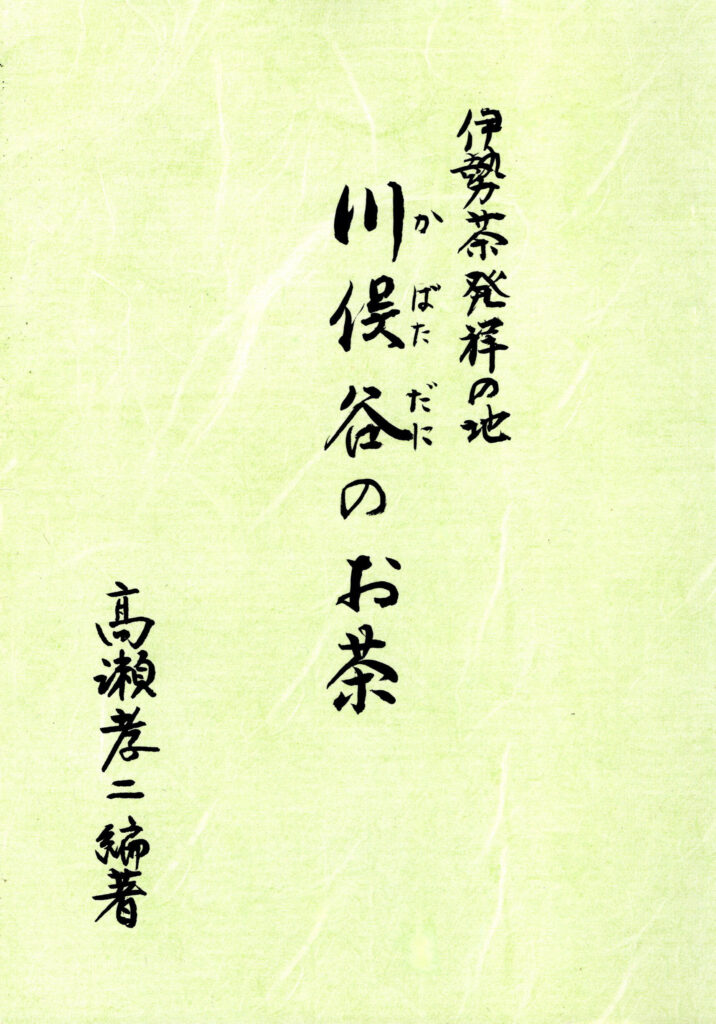 伊勢茶発祥の地
川俣谷のお茶
か ばた だに
髙瀬孝二 編著